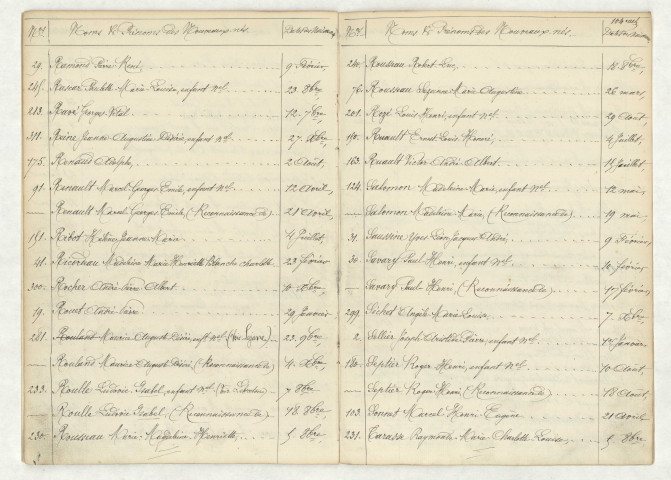 Nos Noms & Prénoms des Nouveaux nés. Dates des Naissances
29. Raimond Pierre René, 9 Février,
245. Marie Louise, enfant nel 23. 8bre
213. Ravé Georges Vital 12. 7bre,
311. Rivière Jeanne Augustine Désirée, enfant nel 27. Xbre,
175. Renaud Adolphe, 2 Août,
91. Renault Marcel Georges Emile, enfant nel 12 Avril,
— Renault Marcel Georges Emile, (Reconnaissance de) 21 Avril,
151. Ribot Jeanne Marie 4 Juillet,
41. Ricordeau Madeleine Marie Henriette Blanche Charlotte 23 février
300. Rocher André Pierre Albert 10 Xbre
19. Rouet André Pierre 29 Janvier
281. Rouland Maurice August Désiré, enft nel 23. 9bre
— Rouland Maurice August Désiré, (Reconnaissance de) 4. Xbre,
233. Roulle Ludovic Isabel, enfant nel 7 8bre
— Roulle Ludovic Isabel, (Reconnaissance de) 18 8bre
230. Rousseau Marie Madeleine Henriette, 5 8bre
Nos Noms & Prénoms des Nouveaux nés. Dates des Naissances
240. Rousseau Robert 18 8bre,
76. Rousseau Suzanne Marie Augustine 26 mars,
201. Rozé Louis Henri, enfant nel 29 Août
150. Ruault Ernest Louis Henri, 4 Juillet,
163. Ruault Victor André Albert 15 Juillet
124. Salomon Madeleine Marie, enfant nel 12 mai,
— Salomon Madeleine Marie, (Reconnaissance de) 19 mai
31. Saussine Yves Léon Jacques André, 9 Février,
30. Savary Paul Henri, enfant nel 10 février,
— Savary Paul Henri, (Reconnaissance de) 17 février,
299. Séchet Angèle Marie Louise, 7 Xbre,
2. Sellier Joseph Christian Pierre, enfant nel 1er Janvier
180. Septier Roger Henri, enfant nel 10 Août
— Septier Roger Henri, (Reconnaissance de) 18 Août,
103. Marcel Henri Eugène 21 Avril
231. Tarasse Raymonde Marie Charlotte Louise, 5 8bre,